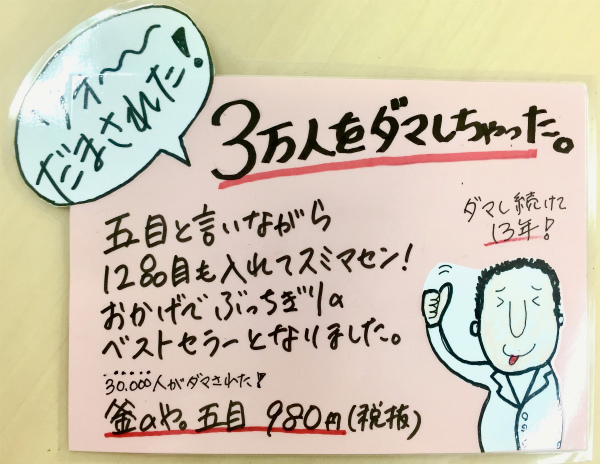 ウォ〜〜
だまされた!
3万人をダマしちゃった。
ダマし続けて
13年!
五目と言いながら
12品目も入れてスミマセン!
おかげでぶっちぎりの
ベストセラーとなりました。
30.000人がダマされた!
釜のや。五目 980円(税抜)